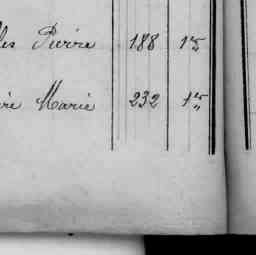 les Pierre 188 1 c
ire Marie 232 1 c